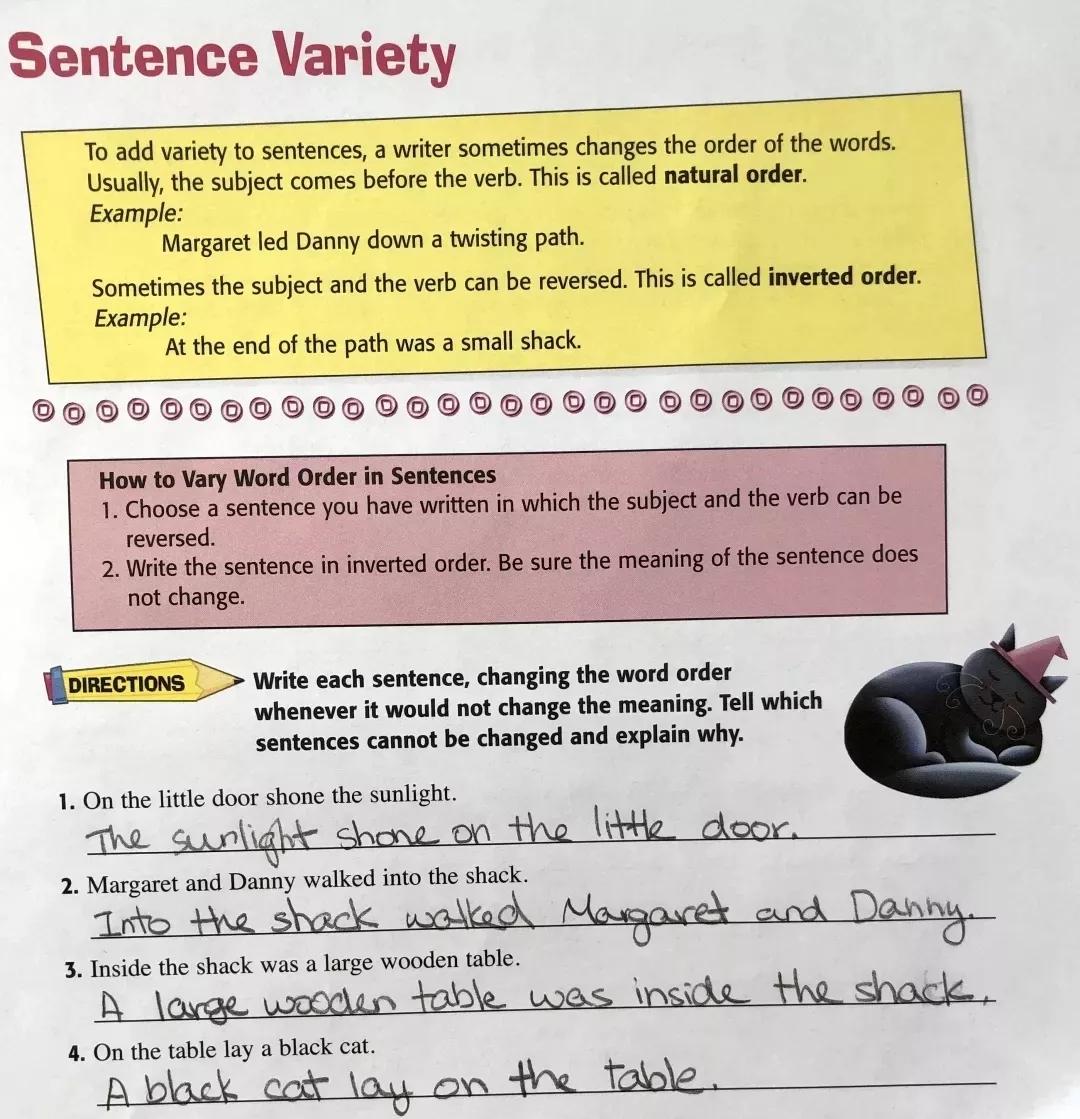 Sentence Variety
To add variety to sentences, a writer sometimes changes the order of the words.
Usually, the subject comes before the verb. This is called natural order.
Example:
Margaret led Danny down a twisting path.
Sometimes the subject and the verb can be reversed. This is called inverted order.
Example:
At the end of the path was a small shack.
How to Vary Word Order in Sentences
1. Choose a sentence you have written in which the subject and the verb can be
reversed.
2. Write the sentence in inverted order. Be sure the meaning of the sentence does
not change.
DIRECTIONS
Write each sentence, changing the word order
whenever it would not change the meaning. Tell which
sentences cannot be changed and explain why.
1. On the little door shone the sunlight.
The sunlight shone on the little door.
2. Margaret and Danny walked into the shack.
Into the shack walked Margaret and Danny.
3. Inside the shack was a large wooden table.
A large wooden table was inside the shack.
4. On the table lay a black cat.
A black cat lay on the table.